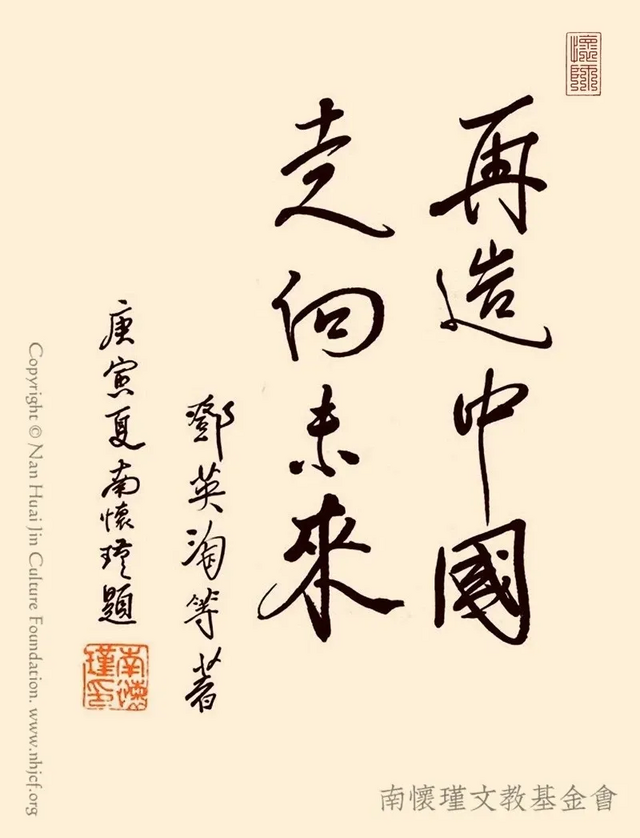 再造中國
走向未來
鄧英淘等著
庚寅夏南懷瑾題
懷師
南懷瑾印
Copyright © Nan Huai Jin Culture Foundation. www.nhjcf.org
南懷瑾文教基金會